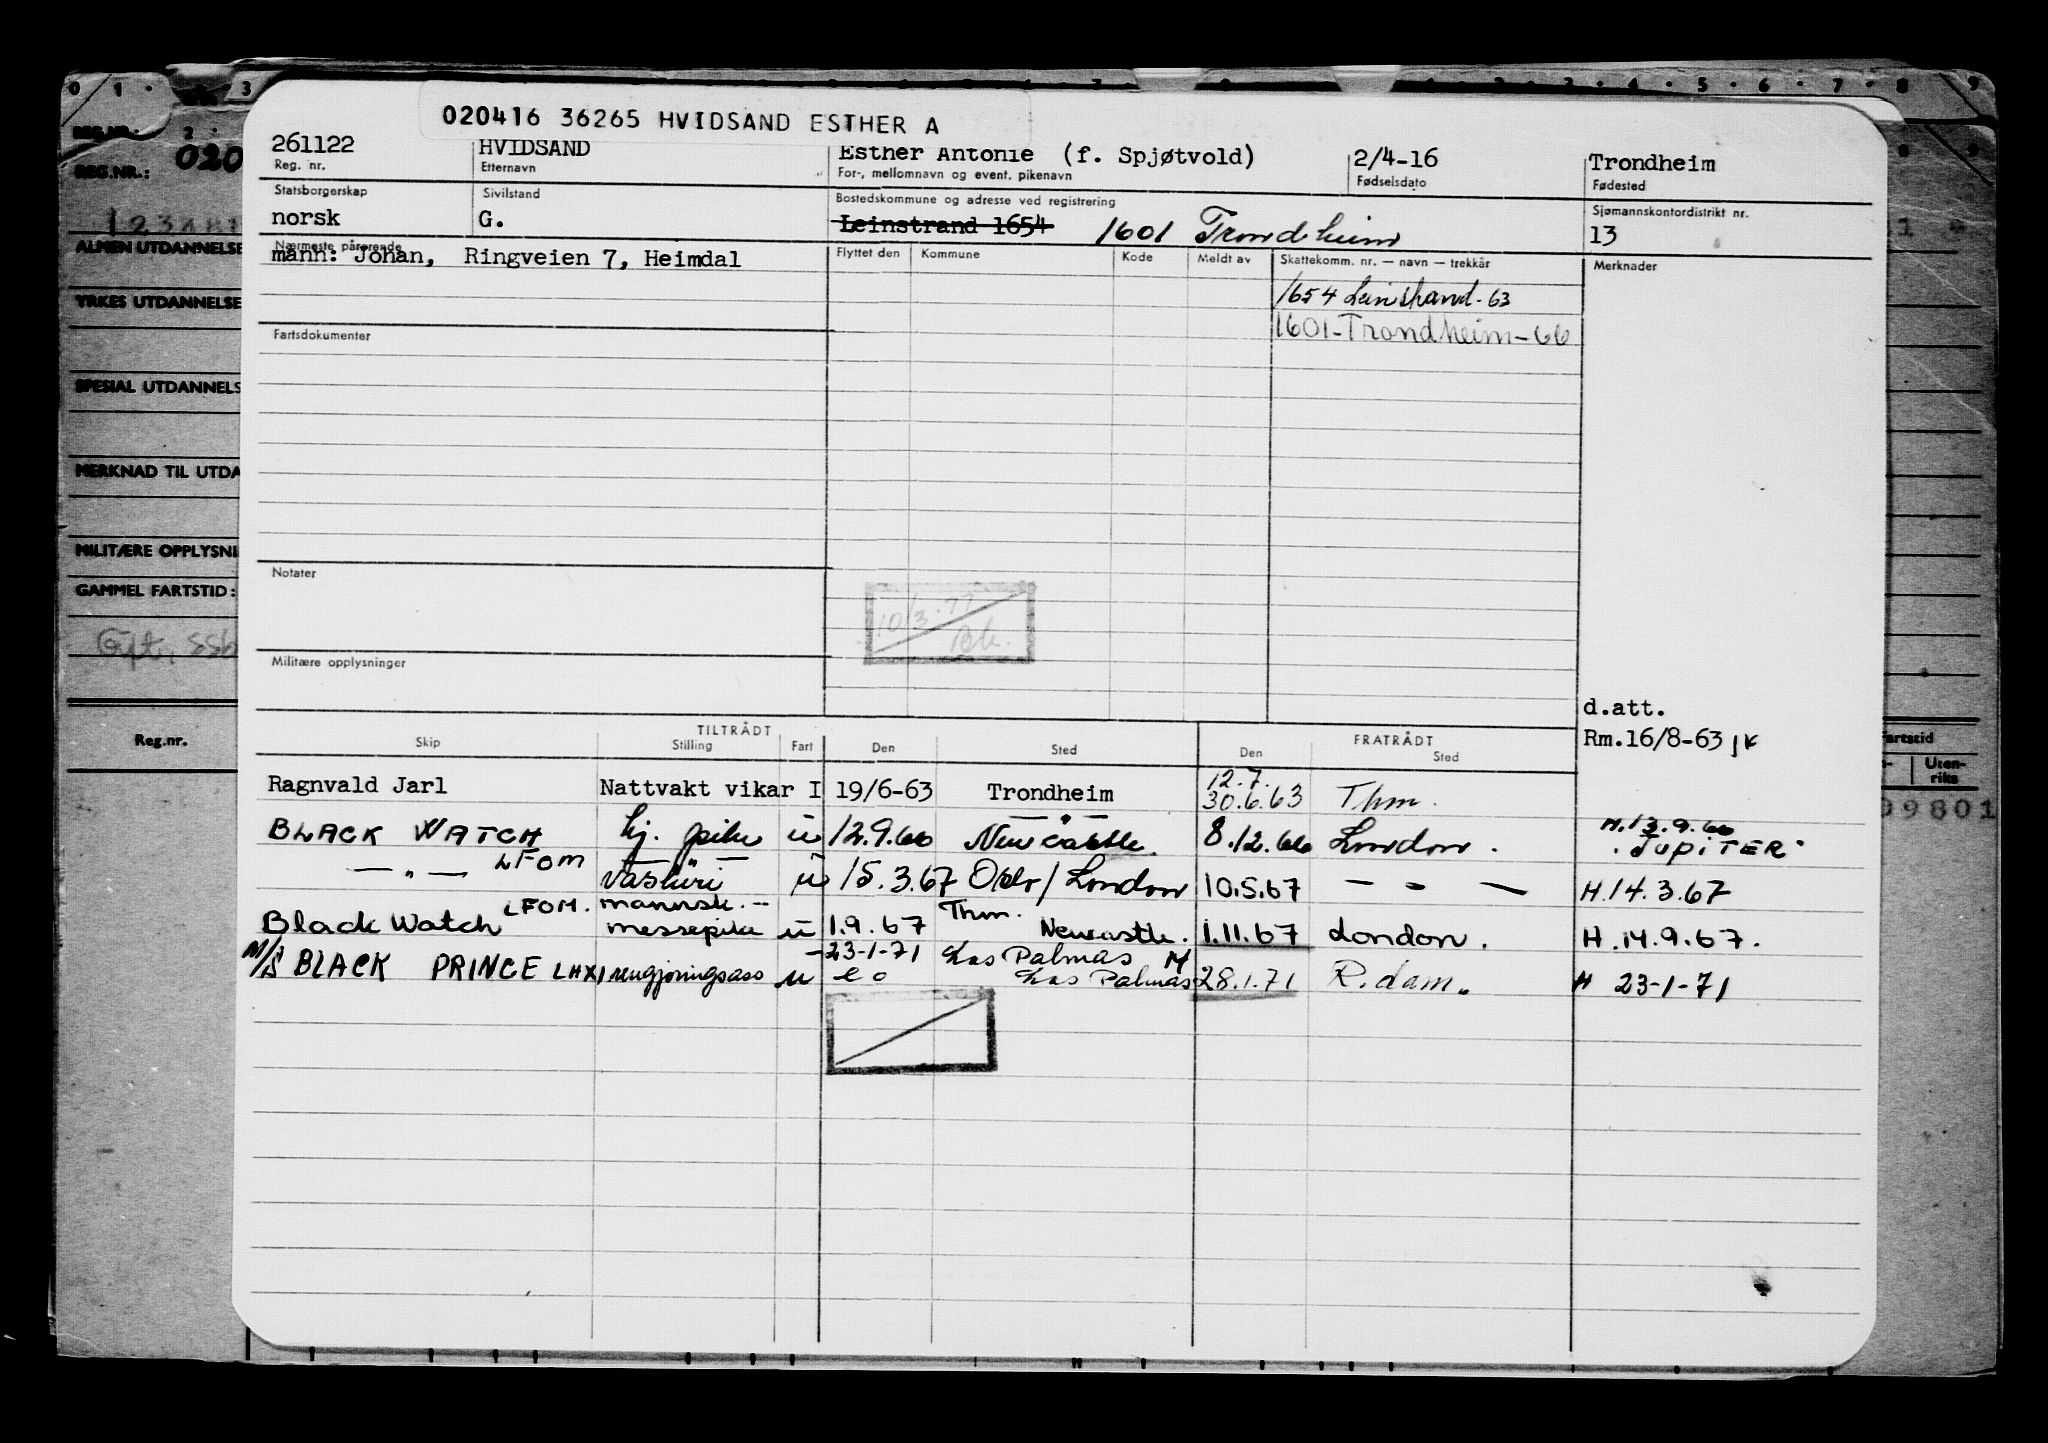 020416 36265 HVIDSAND ESTHER A
261122 HVIDSAND Esther Antonie (f. Spjøtvold) 2/4-16 Trondheim
Reg. nr. Etternavn For-, mellomnavn og event. pikenavn Fødselsdato Fødested
Statsborgerskap Sivilstand Bostedskommune og adresse ved registrering Sjømannskontordistrikt nr.
norsk G. Leinstrand 1654 1601 Trondheim 13
Nærmeste pårørende Flyttet den Kommune Kode Meldt av Skattekomm. nr. — navn — trekkår Merknader
mann: Johan, Ringveien 7, Heimdal
1654 Leinstrand - 63
1601-Trondheim-66
Fartsdokumenter
Notater
10/3.77
Militære opplysninger
d.att.
Rm.16/8-63
TILTRÅDT FRATRÅDT
Skip Stilling Fart Den Sted Den Sted
Ragnvald Jarl Nattvakt vikar I 19/6-63 Trondheim 12.7. 30.6.63 Thm.
BLACK WATCH hj. pike u 12.9.66 Newcastle. 8.12.66 London. H.13.9.66 "JUPITER"
— " — LFOM vaskeri u 15.3.67 Oslo/London 10.5.67 — " — H.14.3.67
Black Watch LFOM. mannsk. messepike u 1.9.67 Thm. Newcastle. 1.11.67 London. H.14.9.67.
M/S BLACK PRINCE LHXI rengjøringsass u 23-1-71 Las Palmas
Las Palmas 28.1.71 R.dam. H 23-1-71
REG.NR.:
020
ALMEN UTDANNELSE
YRKES UTDANNELSE
SPESIAL UTDANNELS
MERKNAD TIL UTDA
MILITÆRE OPPLYSNI
GAMMEL FARTSTID:
Reg.nr.
artstid
Uten-
riks
09801